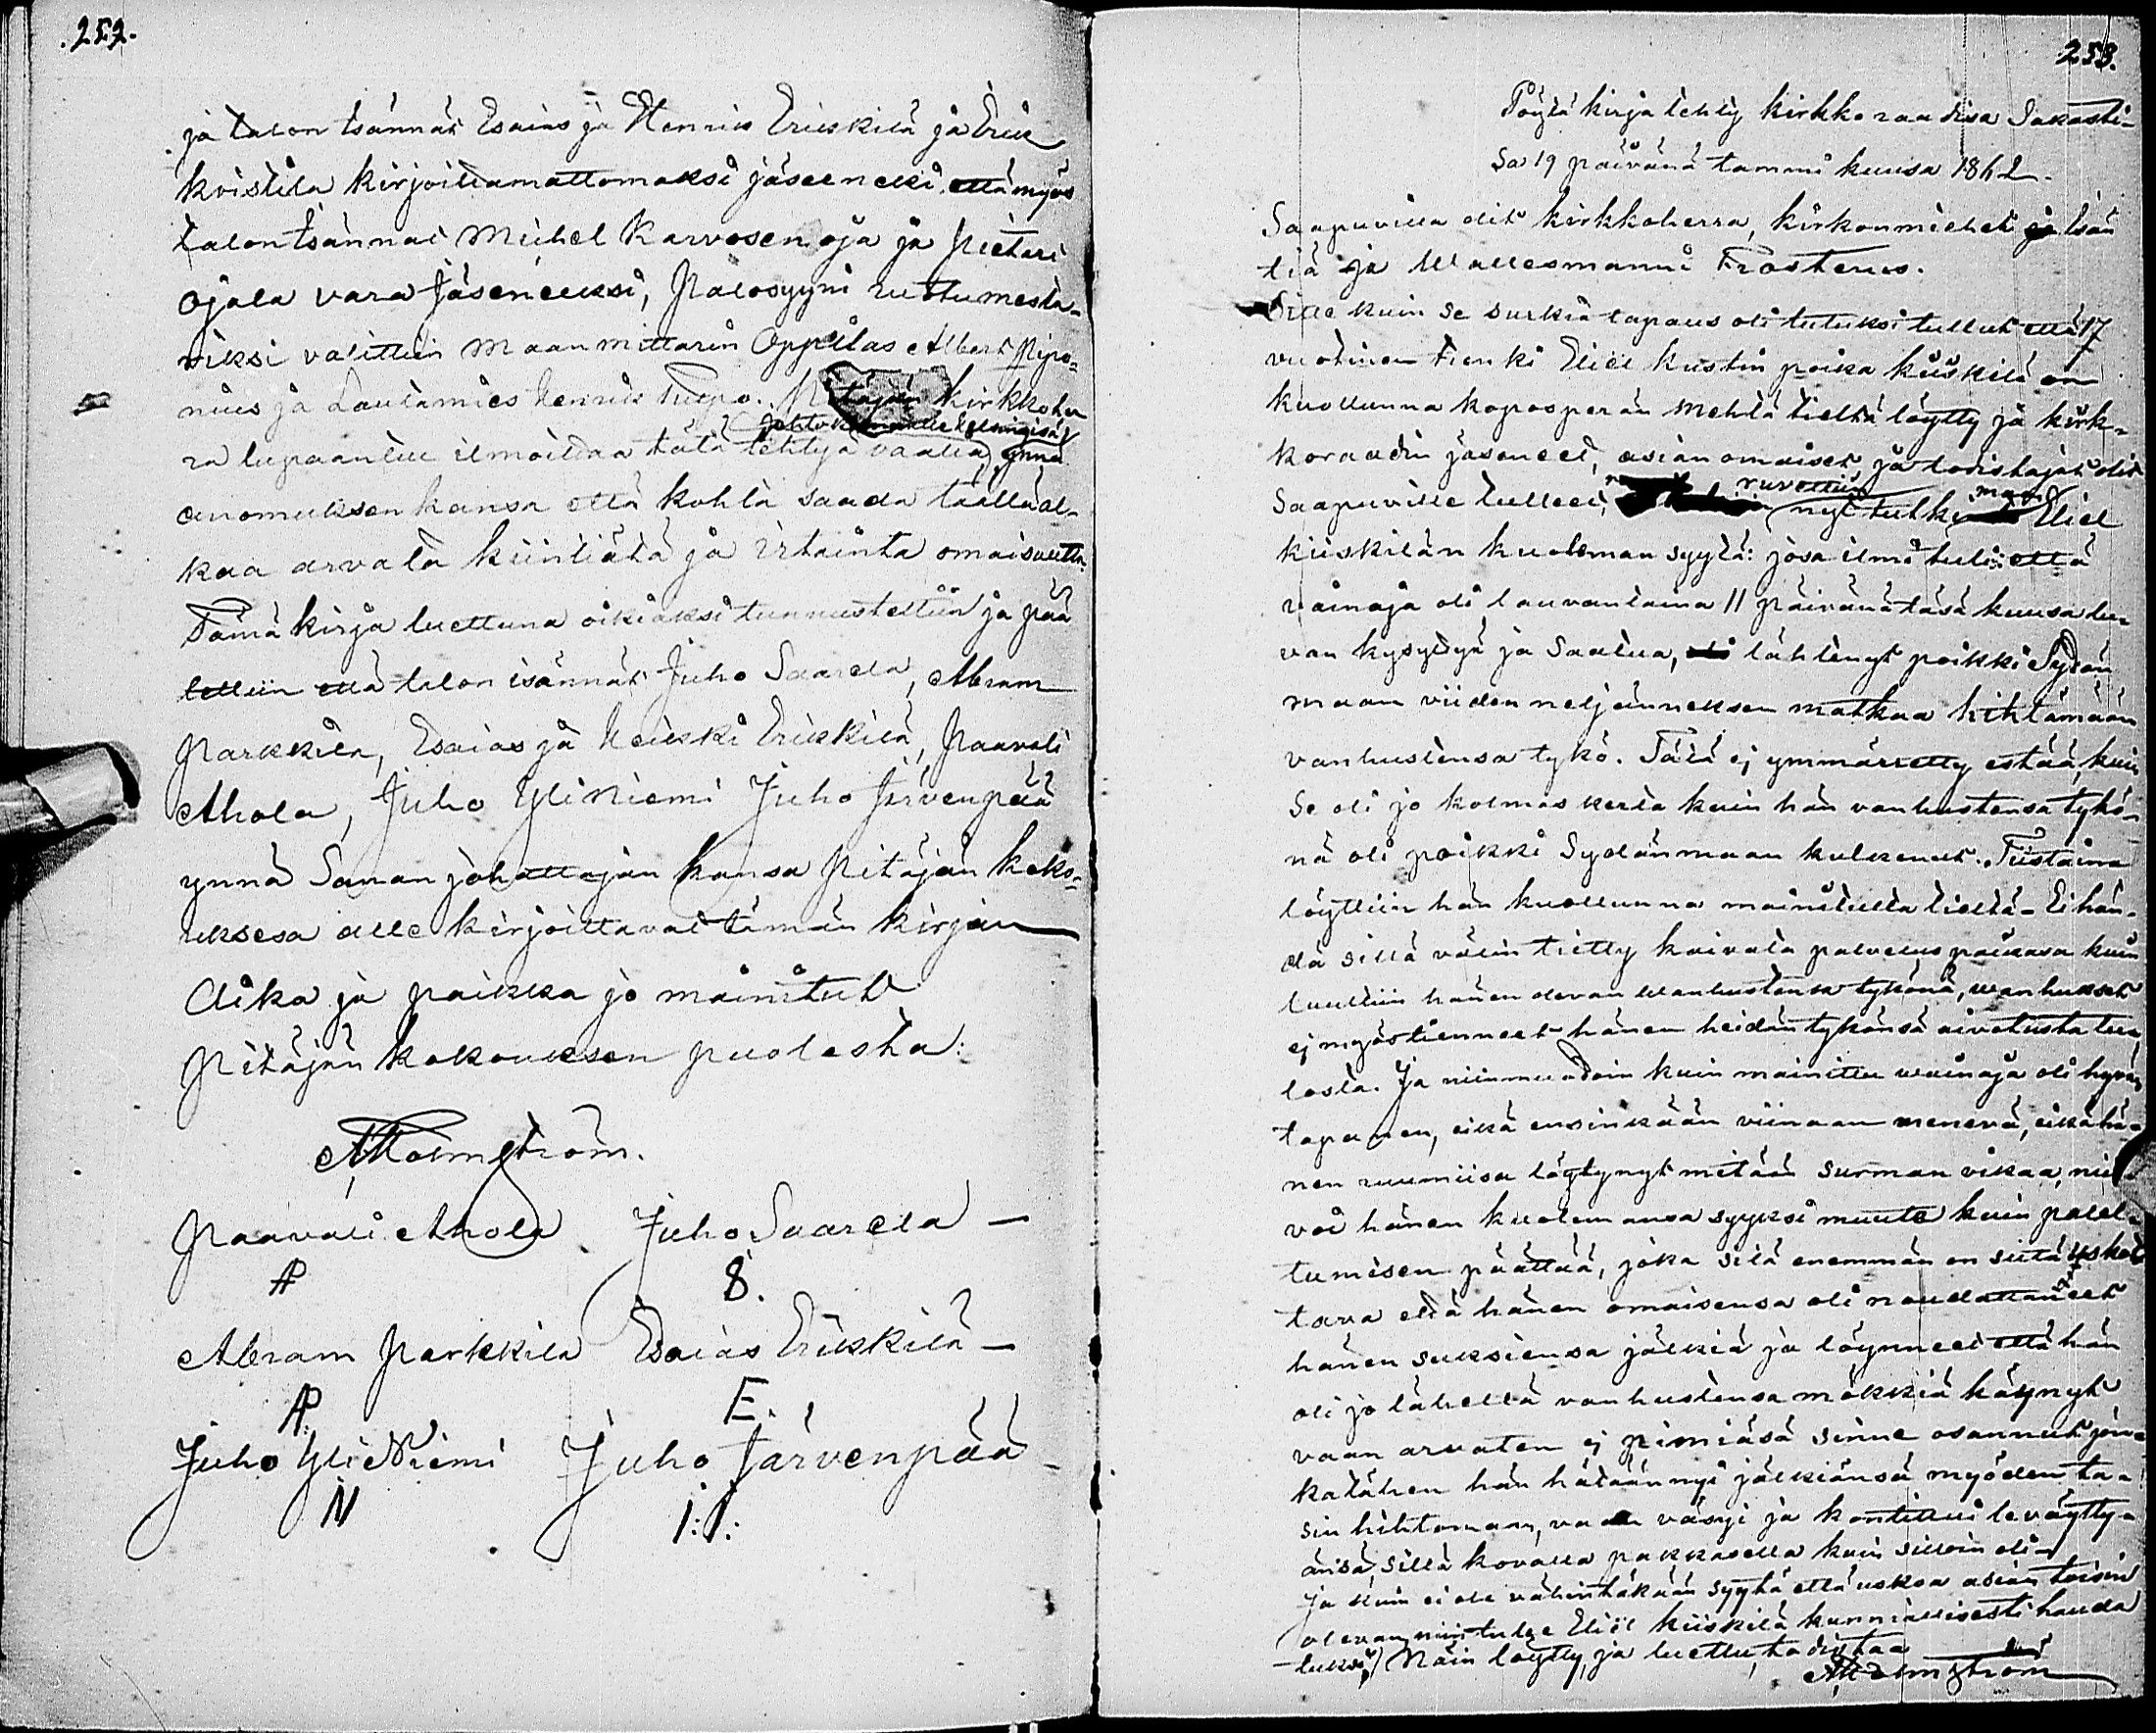 .252.
ja talon Isännät Esaias ja Hennik Erickilä ja Eric
koistila kirjoittamattomaksi jäseneksi että myös
talon Isännät Michel Karvosenoja ja Pietari
Ojala vara Jäseneuksi, Palosyyni ruotumesta-
riksi valittiin maanmittarin Oppilas Albert Pipo-
nius ja Lautamies Hennik Tiepo. Pitäjän kirkkoher
Johtokunnalle Helsingisä
ra lupaantui ilmoittaa tätä tehtyä vaalia, ynnä
anomuksen kansa että kohta saada täällä al-
kaa arvata kiintiätä ja irtainta omaisuutta.
Tämä kirja luettuna oikiaksi tunnustettiin ja pää
tettiin että talon isännät Juho Saarela, Abram
Parkkila, Esaias ja Heikki Erickilä, Paavali
Ahola, Juho Yliniemi Juho Järvenpää
ynnä Sanan johattajan kansa Pitäjän koko-
uksesa alle kirjoittavat tämän kirjan
Aika ja paikka jo mainitut
Pitäjän kokouksen puolesta:
AHolmström.
Paavali Ahola Juho Saarela –
AP S.
Abram Parkkila Esaias Erickilä –
AP. E.
Juho Yli Niemi Juho Järvenpää
N I:I:
253.
Pöytä kirja tehty kirkkoraadisa Sakasti-
sa 19 päivänä tammi kuusa 1862.
Saapuvilla olit kirkkoherra, kirkonmiehet ja Isän
tiä ja Wallesmanni Frosterus.
Sille kuin se surkia tapaus oli tutuksi tullut että 17
vuotinen Renki Eliel Kustin poika Kiiskilä on
kuollunna koposperän mehtä tieltä löytty ja kirk-
koraadin jäsenet, asian omaiset, ja todistajat olit
Saapuville tulleet, ruvettiin nyt tutkimaan Eliel
Kiiskilän kuoleman syytä: josa ilmi tuli: että
vainaja oli lauvantaina 11 päivänä täsä kuusa lu-
van kysyttyä ja Saatua, lähtenyt poikki Sydän
maan viiden neljänneksen matkaa hihtämään
vanhustensa tykö. Tätä ej ymmärretty estää, kuin
se oli jo kolmas kerta kuin hän vanhustensa tykö-
nä oli poikki Sydänmaan kulkenut. Tiistaina
löyttiin hän kuollunna mainitulla tieltä – Ei hän-
dä sillä välin tietty kaivata palvelus paikasa kuin
luultiin hänen olevan wanhustensa tykönä, wanhukset
ej myös tienneet hänen heidän tykönsä aivotusta tu-
losta. Ja niinmuodoin kuin mainittu wainaja oli hyvän
tapanen, eikä ensinkään viinaan menevä, eikä hä-
nen ruumiisa löytynyt mitään surman vikaa, niin
voi hänen kuolemansa syyksi muuta kuin palel-
tumisen päättää, joka sitä enemmän on siitä uskot
tava että hänen omaisensa oli noudattaneet
hänen suksiensa jälkiä ja löynneet että hän
oli jo lähellä vanhustensa mökkiä käynyt
vaan arvaten ej pimiäsä sinne osannut jon-
katähen hän hätäännyi jälkiänsä myöden ta-
sin hihtamaan, vaan väsyi ja kontittui leväytty-
änsä, sillä kovalla pakkasella kuin silloin oli –
Ja kuin ei ole vähintäkään syytä että uskoa asian toisin
olevan, niin tulee Eliel Kiiskilä kunniallisesti hauda
tuksi. Näin löytty, ja luettu, todistaa
AHolmström